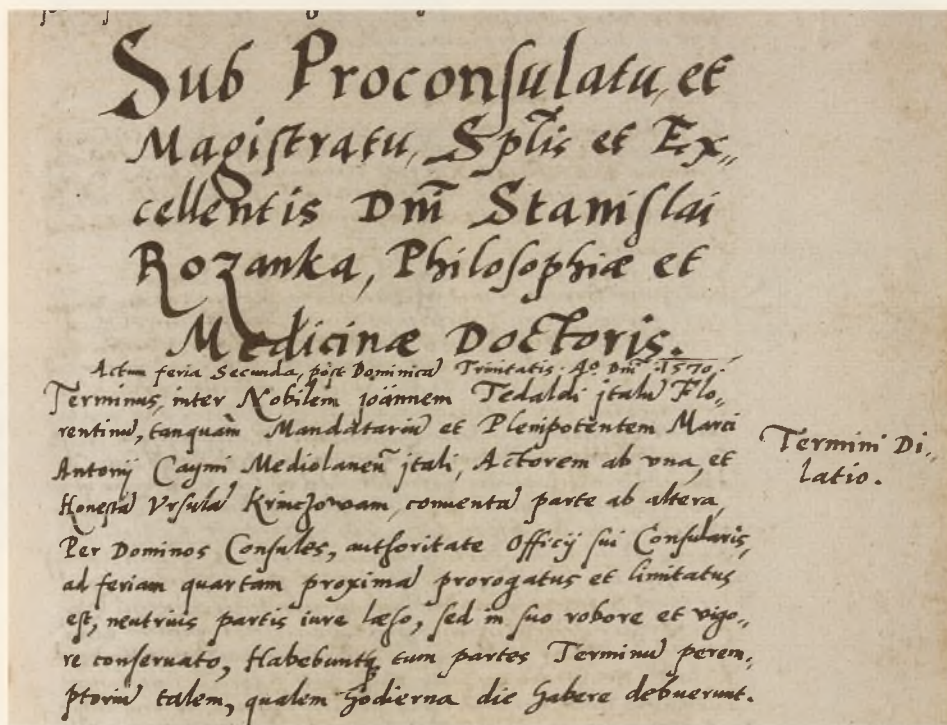 Sub Proconsulatu, et
Magistratu, Sptlis et Ex„
cellentis Dnī Stanislai
Rozanka, Philosophiæ et
Medicinæ Doctoris.
Actum feria Secunda, post Dominicā Trinitatis. Aº. Dnī. 1570.
Terminus, inter Nobilem joānnem Tedaldi jtalū Flo„
rentinū, tanquam Mandatariū et Plenipotentem Marci
Antonij Caymi Mediolanen̄ jtali, Actorem ab vna, et
Honestā Vrsulā Krinczowam, conuentā parte ab altera,
Per Dominos Consules, authoritate Officij sui Consularis,
ad feriam quartam proximā prorogatus et limitatus
est, neutrius partis iure læso, sed in suo robore et vigo„
re conseruato, Habebuntq; tum partes Terminū perem„
ptoriū talem, qualem hodierna die habere debuerunt.
Termini Di„
latio.